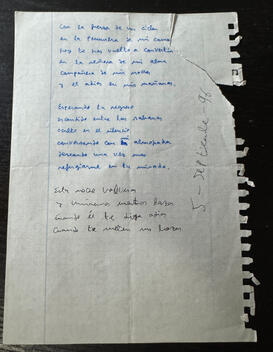 Con la fuerza de un ciclón
en la penumbra de mi cama,
hoy te has vuelto a convertir
en la dueña de mi alma
compañera de mis noches
y el adiós en mis mañanas.
Esperando tu regreso
escondido entre las sábanas
oculto en el silencio
conversando con la almohada
deseando una vez más
refugiarme en tu mirada.
Esta noche volveré
y uniremos nuestros
cuando él te diga adiós
cuando te
5 - Septiembre - 96